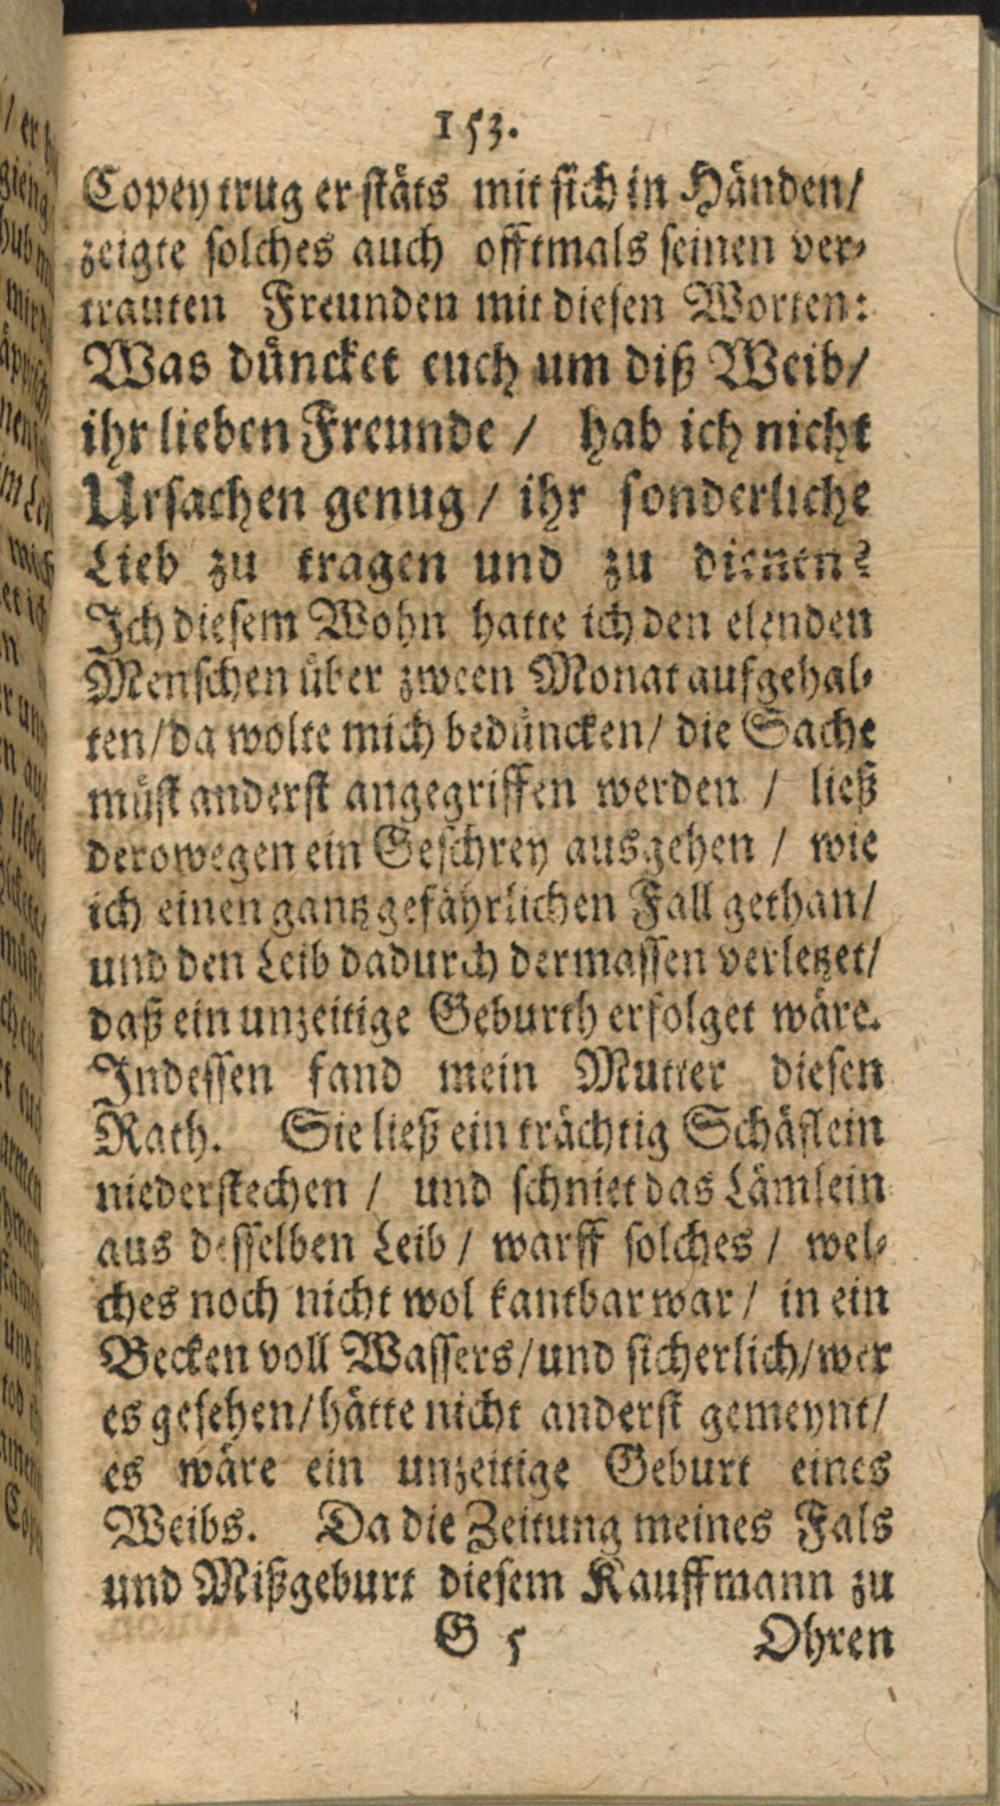 153.
Copey trug er stäts mit sich in Händen/
zeigte solches auch offtmals seinen ver-
trauten Freunden mit diesen Worten:
Was düncket euch um diß Weib/
ihr lieben Freunde / hab ich nicht
Ursachen genug / ihr sonderliche
Lieb zu tragen und zu dienen?
Ich diesem Wohn hatte ich den elenden
Menschen über zween Monat aufgehal-
ten/da wolte mich bedüncken/ die Sache
müst anderst angegriffen werden / ließ
derowegen ein Geschrey ausgehen / wie
ich einen gantz gefährlichen Fall gethan/
und den Leib dadurch dermassen verletzet/
daß ein unzeitige Geburth erfolget wäre.
Indessen fand mein Mutter diesen
Rath. Sie ließ ein trächtig Schäflein
niederstechen / und schniet das Lämlein
aus desselben Leib / warff solches / wel-
ches noch nicht wol kantbar war / in ein
Becken voll Wassers/und sicherlich/wer
es gesehen/hätte nicht anderst gemeynt/
es wäre ein unzeitige Geburt eines
Weibs. Da die Zeitung meines Fals
und Mißgeburt diesem Kauffmann zu
G 5 Ohren